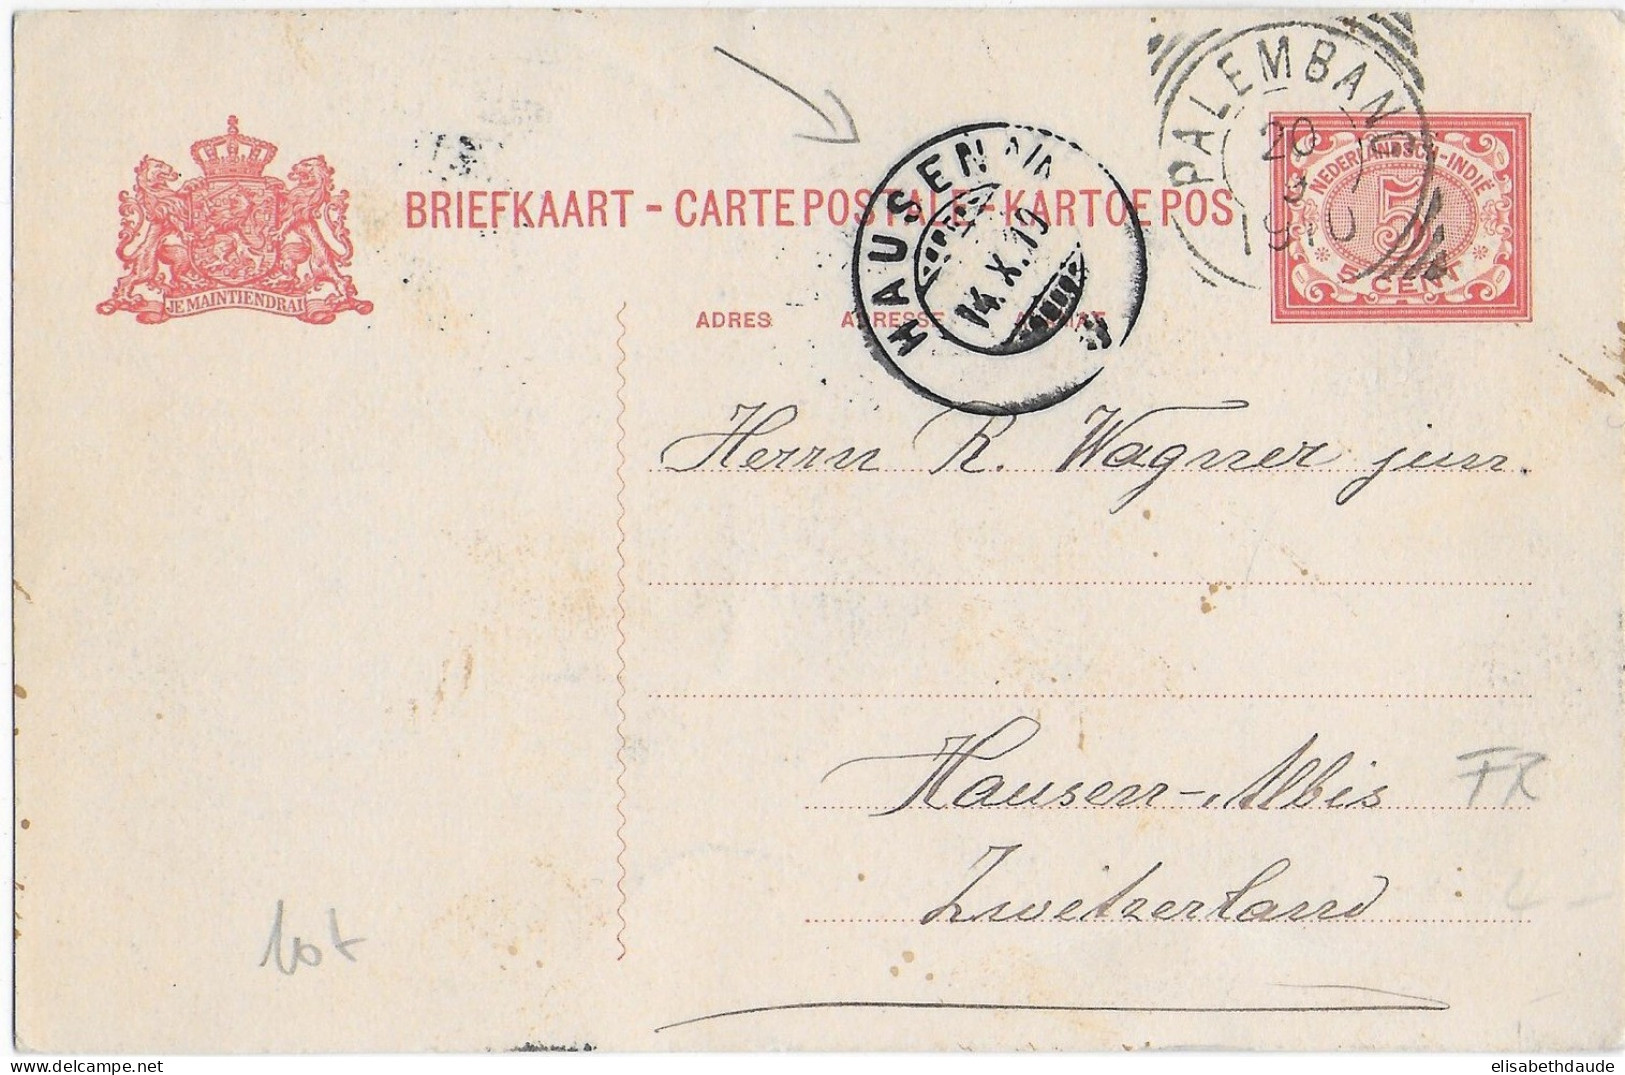 PALEMBANG
20
9
1910
NEDERLANDSCH-INDIË
5
5 CENT
JE MAINTIENDRAI
BRIEFKAART - CARTE POSTALE - KARTOE POS
HAUSEN
14.X.10
ADRES ADRESSE ALAMAT
Herrn R. Wagner jun.
Hausen-Albis
Zwitzerland
FR
lot
elisabethdaude